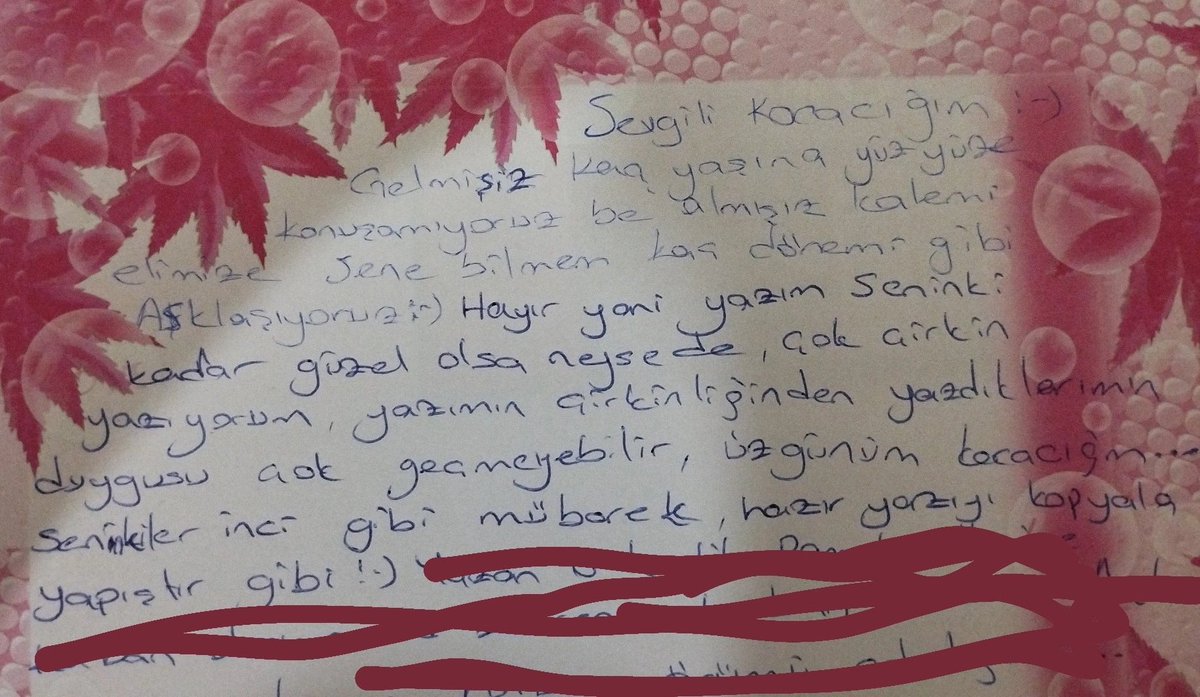 Sevgili Kocacığım :-)
Gelmişiz kaç yaşına yüz yüze
konuşamıyoruz be almışız kalemi
elimize sene bilmem kaç dönemi gibi
Aşklaşıyoruz :-) Hayır yani yazım seninki
kadar güzel olsa neyse de, çok çirkin
yazıyorum, yazımın çirkinliğinden yazdıklarımın
duygusu çok geçmeyebilir, üzgünüm kocacığm...
seninkiler inci gibi mübarek, hazır yazıyı kopyala
yapıştır gibi :-)